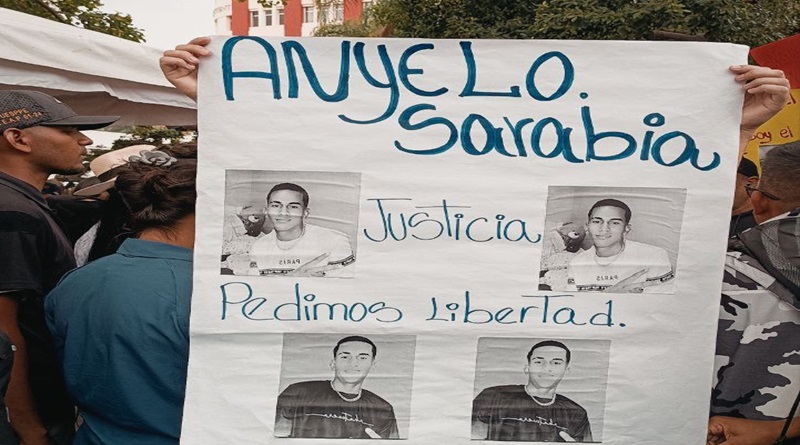 ANYELO.
Sarabia
Justicia
Pedimos Libertad.